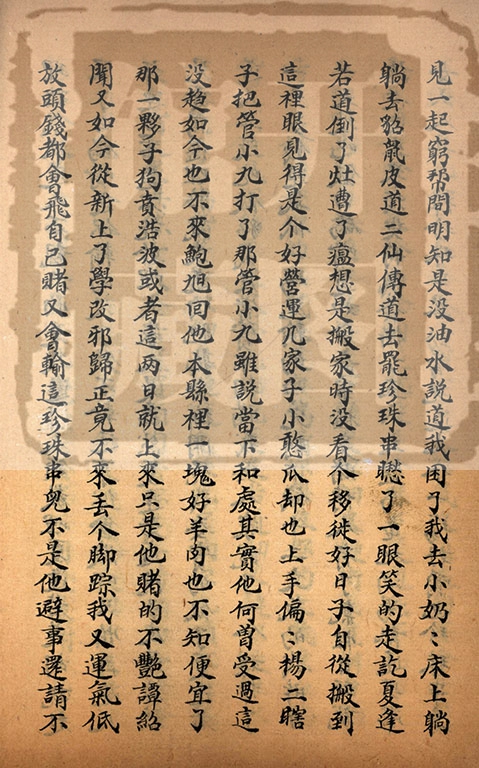 見一起窮幇問明知是没油水說道我困了我去小奶〻床上躺
躺去貂䑕皮道二仙傳道去罷珍珠串瞅了一眼笑的走訖夏逢
若道倒了灶遭了瘟想是搬家時没看个移徙好日子自從搬到
這裡眼見得是个好營運几家子小憨瓜却也上手偏〻楊二瞎
子把管小九打了那管小九雖說當下和處其實他何曽受過這
没趣如今也不來鮑旭回他本縣裡一塊好羊肉也不知便宜了
那一夥子狗賁浩波或者這两日就上來只是他賭的不艷譚紹
聞又如今從新上了學改邪歸正竟不來丢个脚踪我又運氣低
放頭錢都會飛自己賭又會輸這珍珠串兒不是他避事還請不